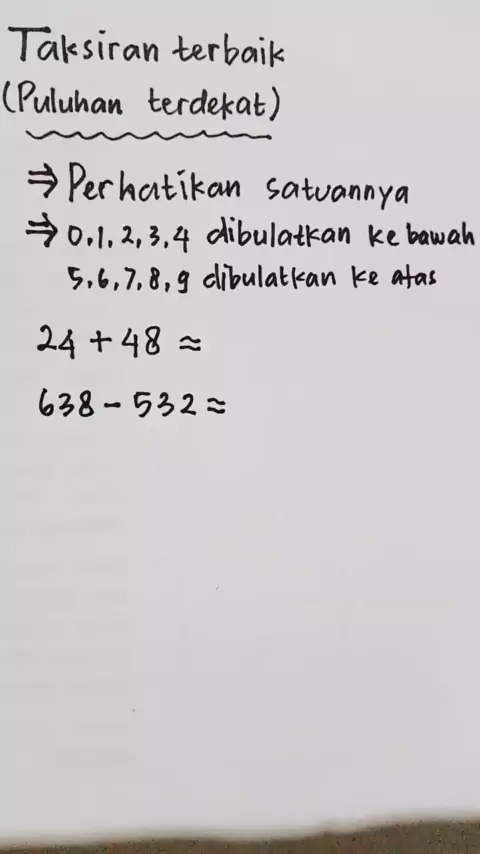 Taksiran terbaik
(Puluhan terdekat)
⇒ Perhatikan satuannya
⇒ 0,1,2,3,4 dibulatkan ke bawah
5,6,7,8,9 dibulatkan ke atas
24 + 48 ≈
638 - 532 ≈